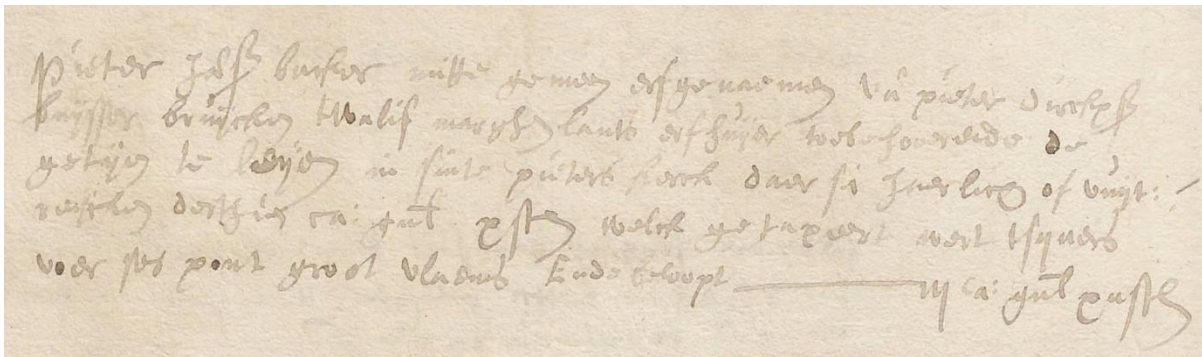 Pieter Jansz backer mitte gemeen erfgenaemen va pieter dircxsz
buysser bruycken twalif marghen lants erfhuijer toebehoorende de
getijen te leijen in sinte pieters kerck daer si jaerlicx of vuijt:
reijcken dertich ca: gul xst welck getaxeert wert tsijaers
voer ses pont groot vlaems Ende beloopt iij ca: gul xijst